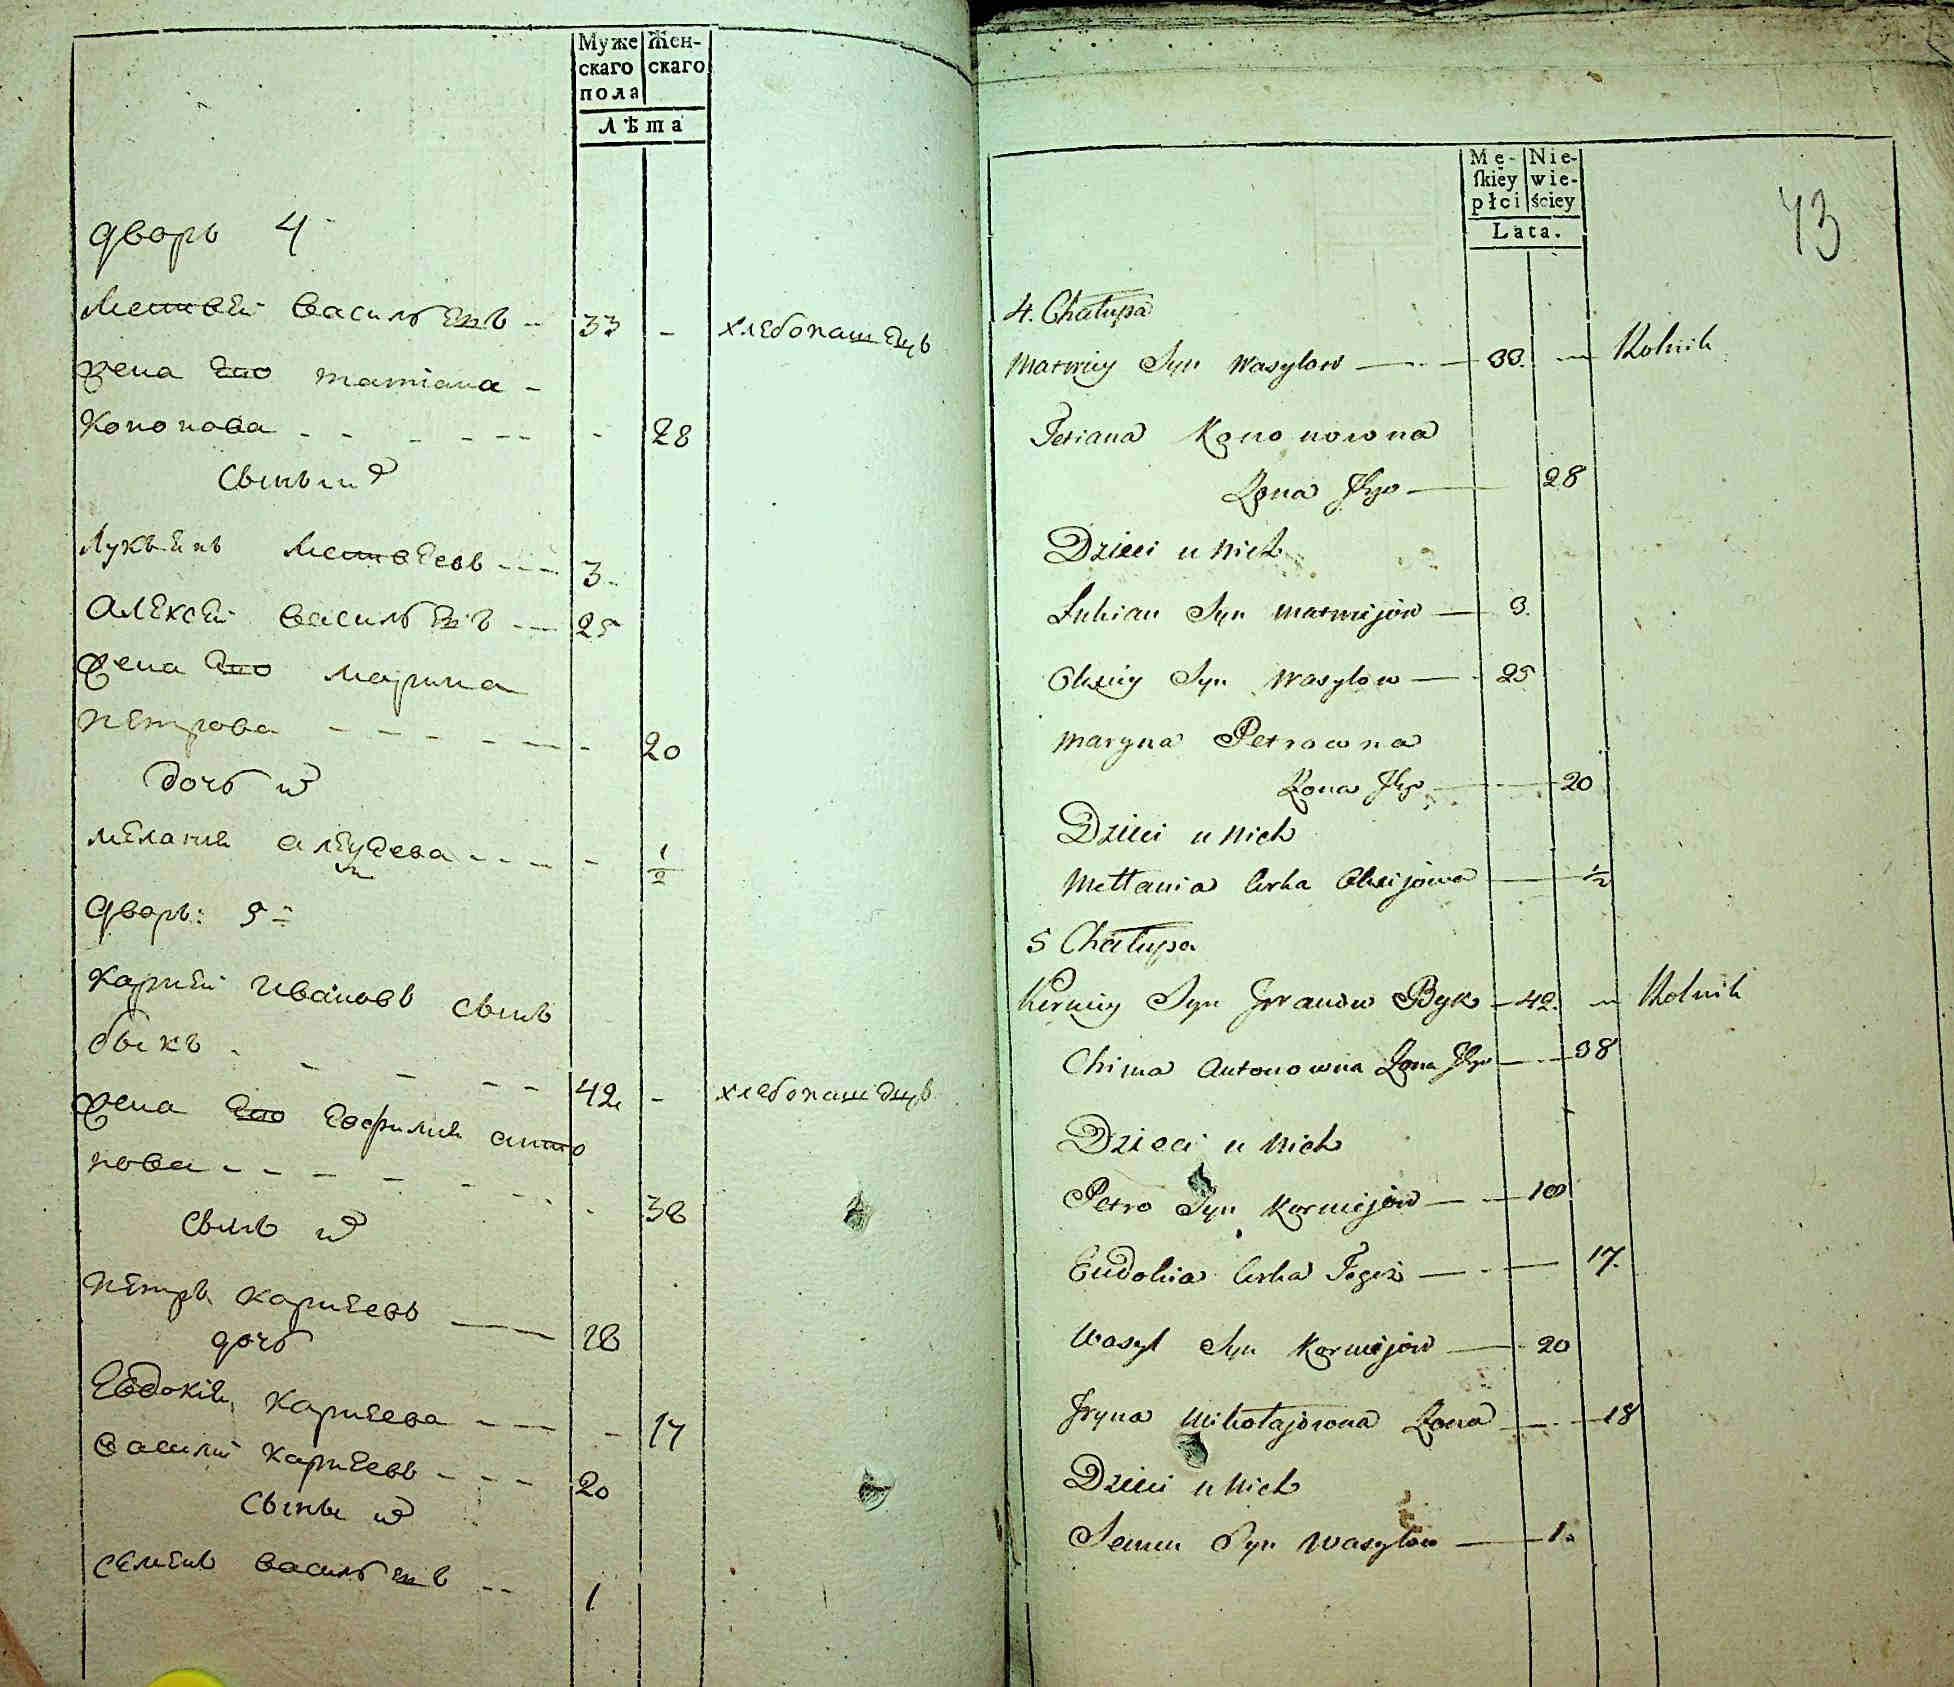 Муже
скаго
пола
Жен-
скаго
Лѣта
дворъ 4
Матвей Васильевъ -- 33 - хлебопашецъ
жена Его татиана -
Кононова - - - - - - - 28
Сынъ
Лукьянъ Матвеевъ - - - 3
Алексей Васильевъ - - 25
жена Его марина
Петрова - - - - - - 20
дочь
мелания - - - - 1/2
дворъ: 5
Карней Ивановъ сынъ
быкъ - - - - - 42 - хлебопашецъ
жена Его Евфимия анто
нова - - - - - - - 38
Сынъ
Петръ Карнеевъ — 18
дочь
Евдокия Карнеева - - - 17
Василий Карнеевъ - - - 20
Сынъ
Семенъ Васильевъ - - 1
Mę-
ſkiey
płci
Nie-
wie-
ściey
Lata.
43
4. Chałupa
Matwiey Syn Wasylow — 33. — Rolnik
Tetiana Kononowna
Żona Jego — 28
Dzieci u nich
Lukian Syn Matwijów — 3.
Olexiy Syn Wasylow — 25
Maryna Petrowna
Żona Jego — 20
Dzieci u nich
Mełłania Corka Olexijowa — 1/2
5 Chałupa
Syn Jwanow Byk — 42. — Rolnik
Chima Antonowna Żona Jego — 38
Dzieci u nich
Petro Syn Kornijów — 18
Eudokia Corka Tegoż — 17.
Wasyl Syn Kornijów — 20
Jryna Mikołajowna Żona — 18
Dzieci u nich
Semen Syn Wasylow — 1.